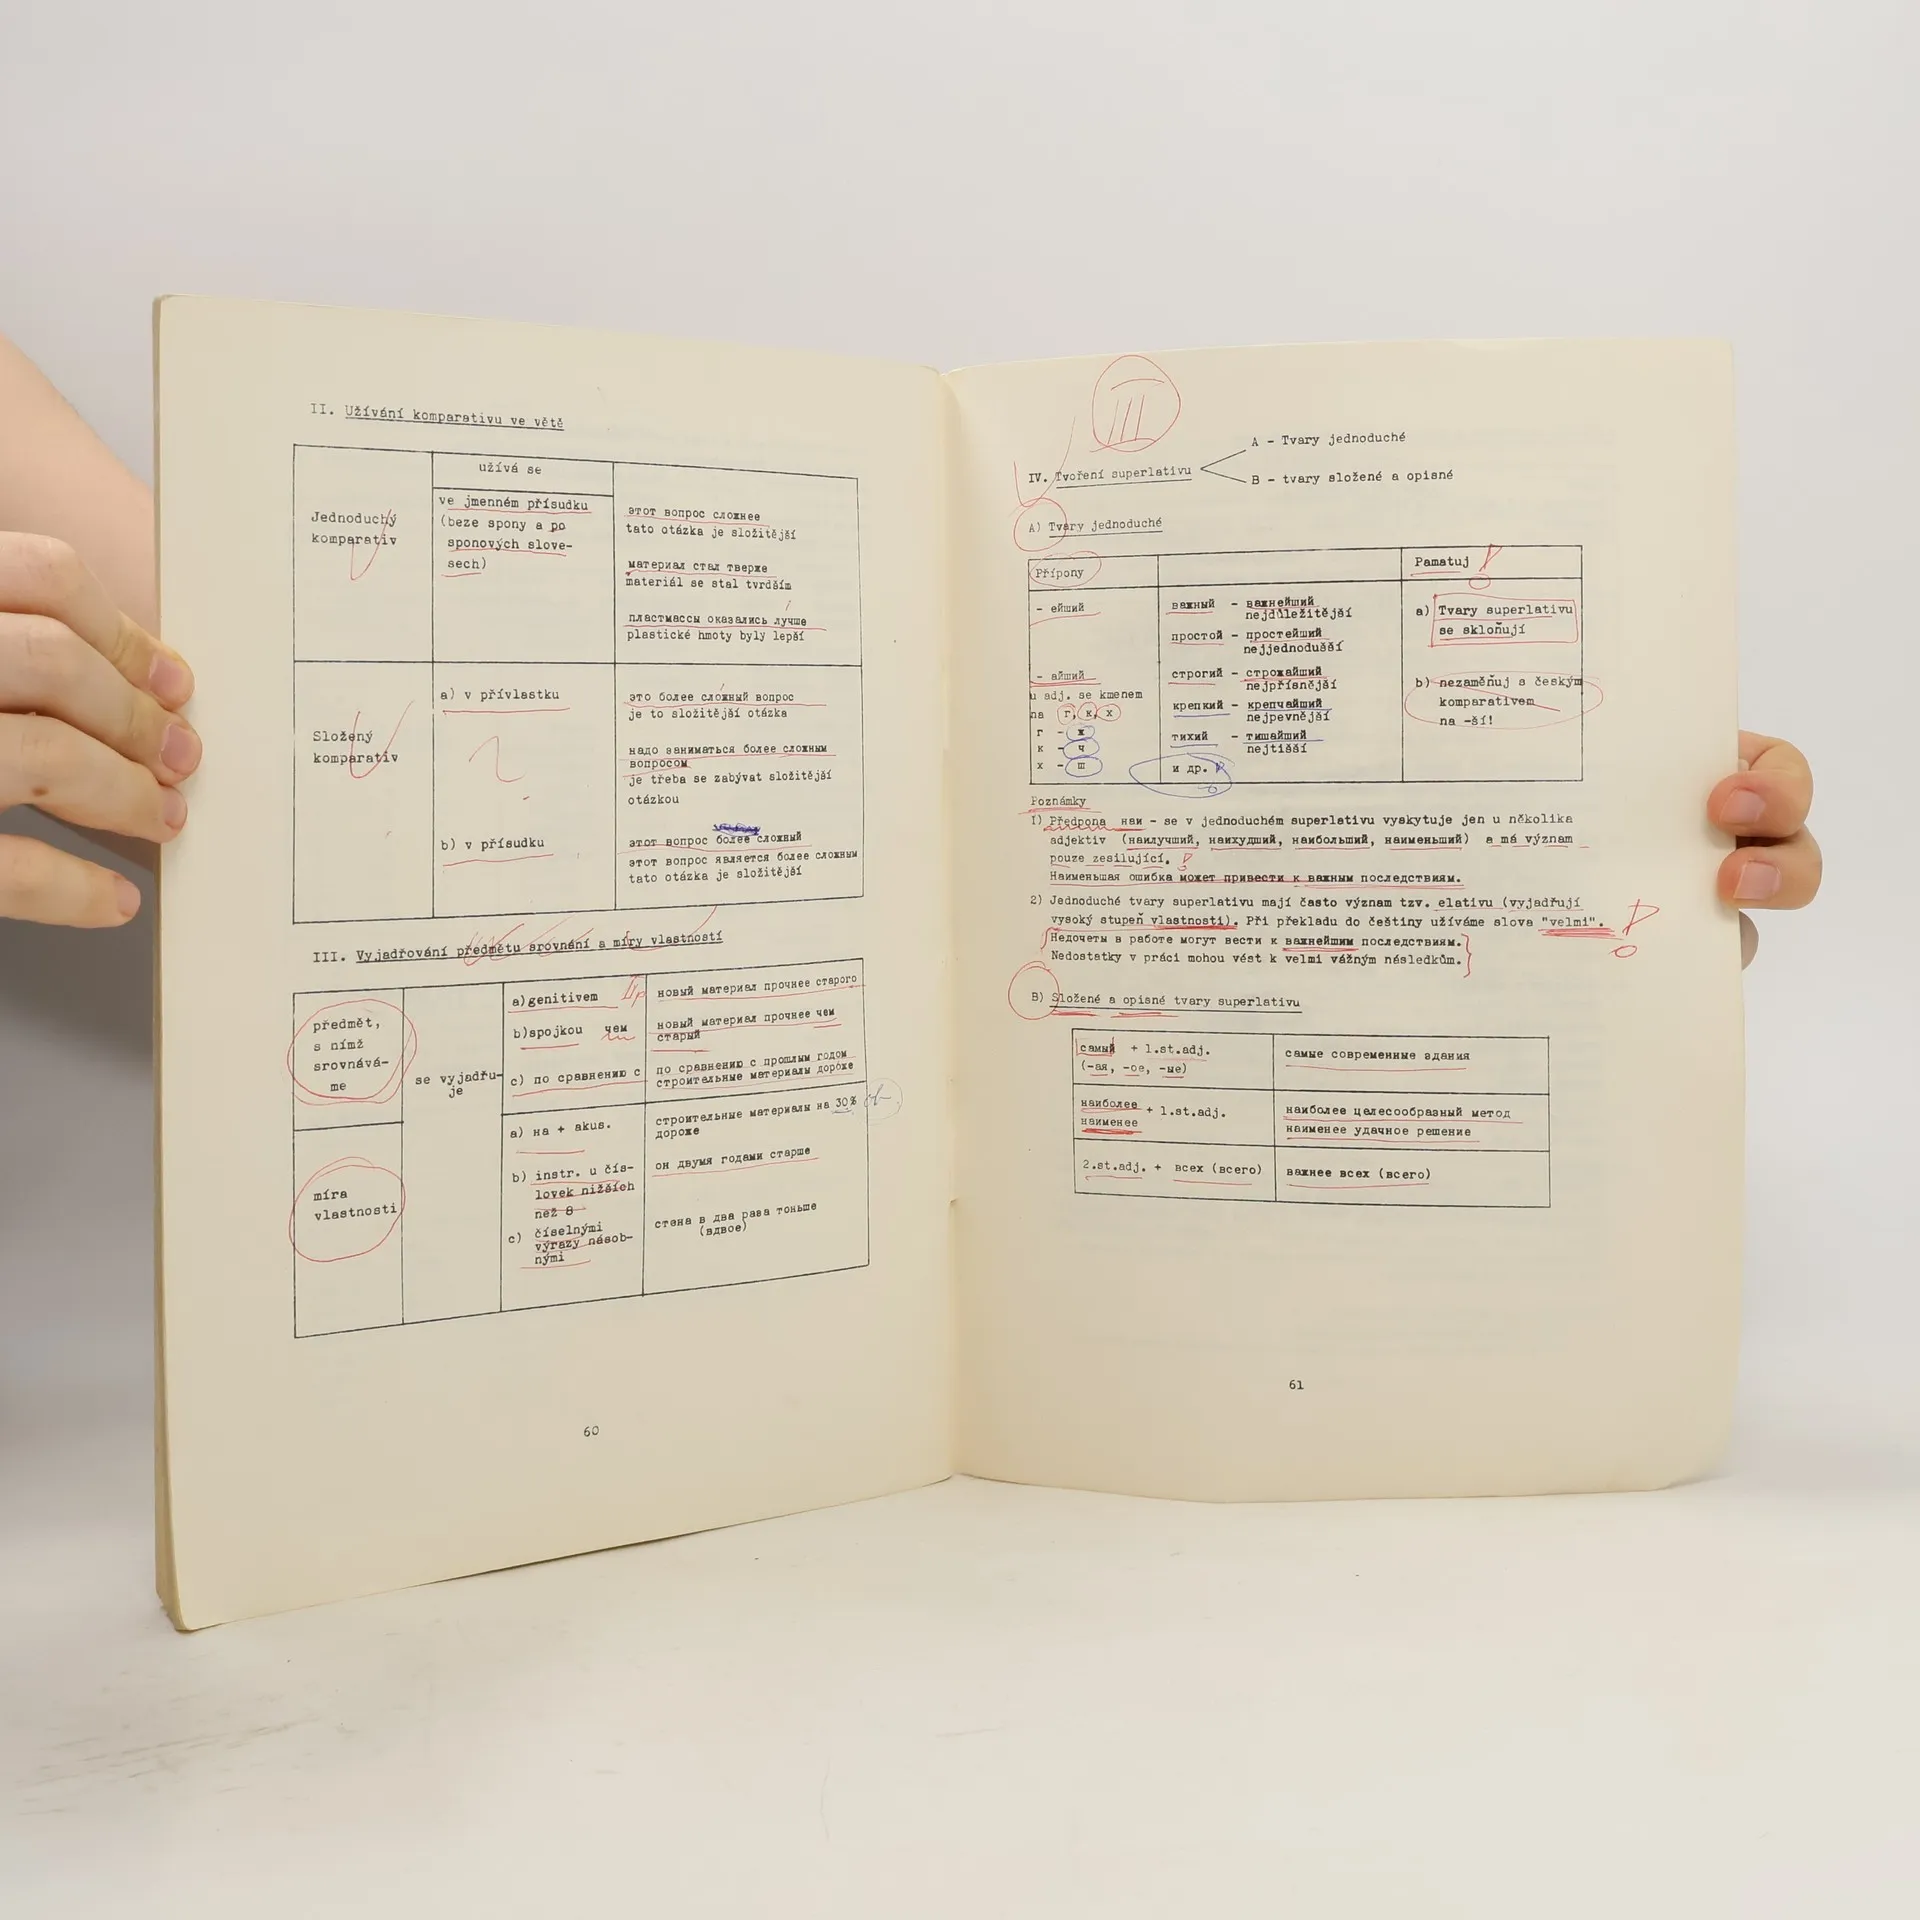 II. Užívání komparativu ve větě
užívá se
Jednoduchý
komparativ
ve jmenném přísudku
(beze spony a po
sponových slove-
sech)
этот вопрос сложнее
tato otázka je složitější
материал стал тверже
materiál se stal tvrdším
пластмассы оказались лучше
plastické hmoty byly lepší
Složený
komparativ
a) v přívlastku
это более сложный вопрос
je to složitější otázka
надо заниматься более сложным
вопросом
je třeba se zabývat složitější
otázkou
b) v přísudku
этот вопрос более сложный
этот вопрос является более сложным
tato otázka je složitější
III. Vyjadřování předmětu srovnání a míry vlastností
předmět,
s nímž
srovnává-
me
se vyjadřu-
je
a)genitivem
новый материал прочнее старого
b)spojkou чем
новый материал прочнее чем
старый
c) по сравнению с
по сравнению с прошлым годом
строительные материалы дороже
míra
vlastnosti
a) на + akus.
строительные материалы на 30%
дороже
b) instr. u čís-
lovek nižších
než 8
он двумя годами старше
c) číselnými
výrazy násob-
nými
стена в два раза тоньше
(вдвое)
60
III
IV. Tvoření superlativu
A - Tvary jednoduché
B - tvary složené a opisné
A) Tvary jednoduché
Přípony
Pamatuj
- ейший
важный - важнейший
nejdůležitější
простой - простейший
nejjednodušší
- айший
u adj. se kmenem
na г, к, х
г - ж
к - ч
х - ш
строгий - строжайший
nejpřísnější
крепкий - крепчайший
nejpevnější
тихий - тишайший
nejtišší
и др.
a) Tvary superlativu
se skloňují
b) nezaměňuj s českým
komparativem
na -ší!
Poznámky
1) Předpona наи - se v jednoduchém superlativu vyskytuje jen u několika
adjektiv (наилучший, наихудший, наибольший, наименьший) a má význam
pouze zesilující.
Наименьшая ошибка может привести к важным последствиям.
2) Jednoduché tvary superlativu mají často význam tzv. elativu (vyjadřují
vysoký stupeň vlastnosti). Při překladu do češtiny užíváme slova "velmi".
Недочеты в работе могут вести к важнейшим последствиям.
Nedostatky v práci mohou vést k velmi vážným následkům.
B) Složené a opisné tvary superlativu
самый + 1.st.adj.
(-ая, -ое, -ые)
самые современные здания
наиболее
наименее
+ 1.st.adj.
наиболее целесообразный метод
наименее удачное решение
2.st.adj. + всех (всего)
важнее всех (всего)
61